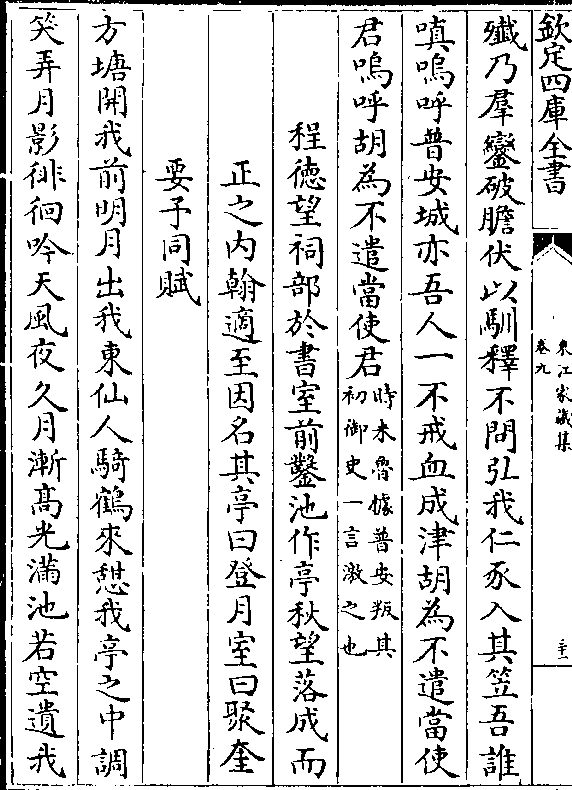 欽定四庫全書
東江家藏集
卷九
殲乃羣蠻破膽伏以馴釋不問弘我仁豕入其笠吾誰
嗔嗚呼普安城亦吾人一不戒血成津胡為不遣當使
君嗚呼胡為不遣當使君時米魯據普安叛其初御史一言激之也
程徳望祠部於書室前鑿池作亭秋望落成而
正之内翰適至因名其亭曰登月室曰聚奎
要予同賦
方塘開我前明月出我東仙人騎鶴來憇我亭之中調
笑弄月影徘徊吟天風夜久月漸髙光滿池若空遺我